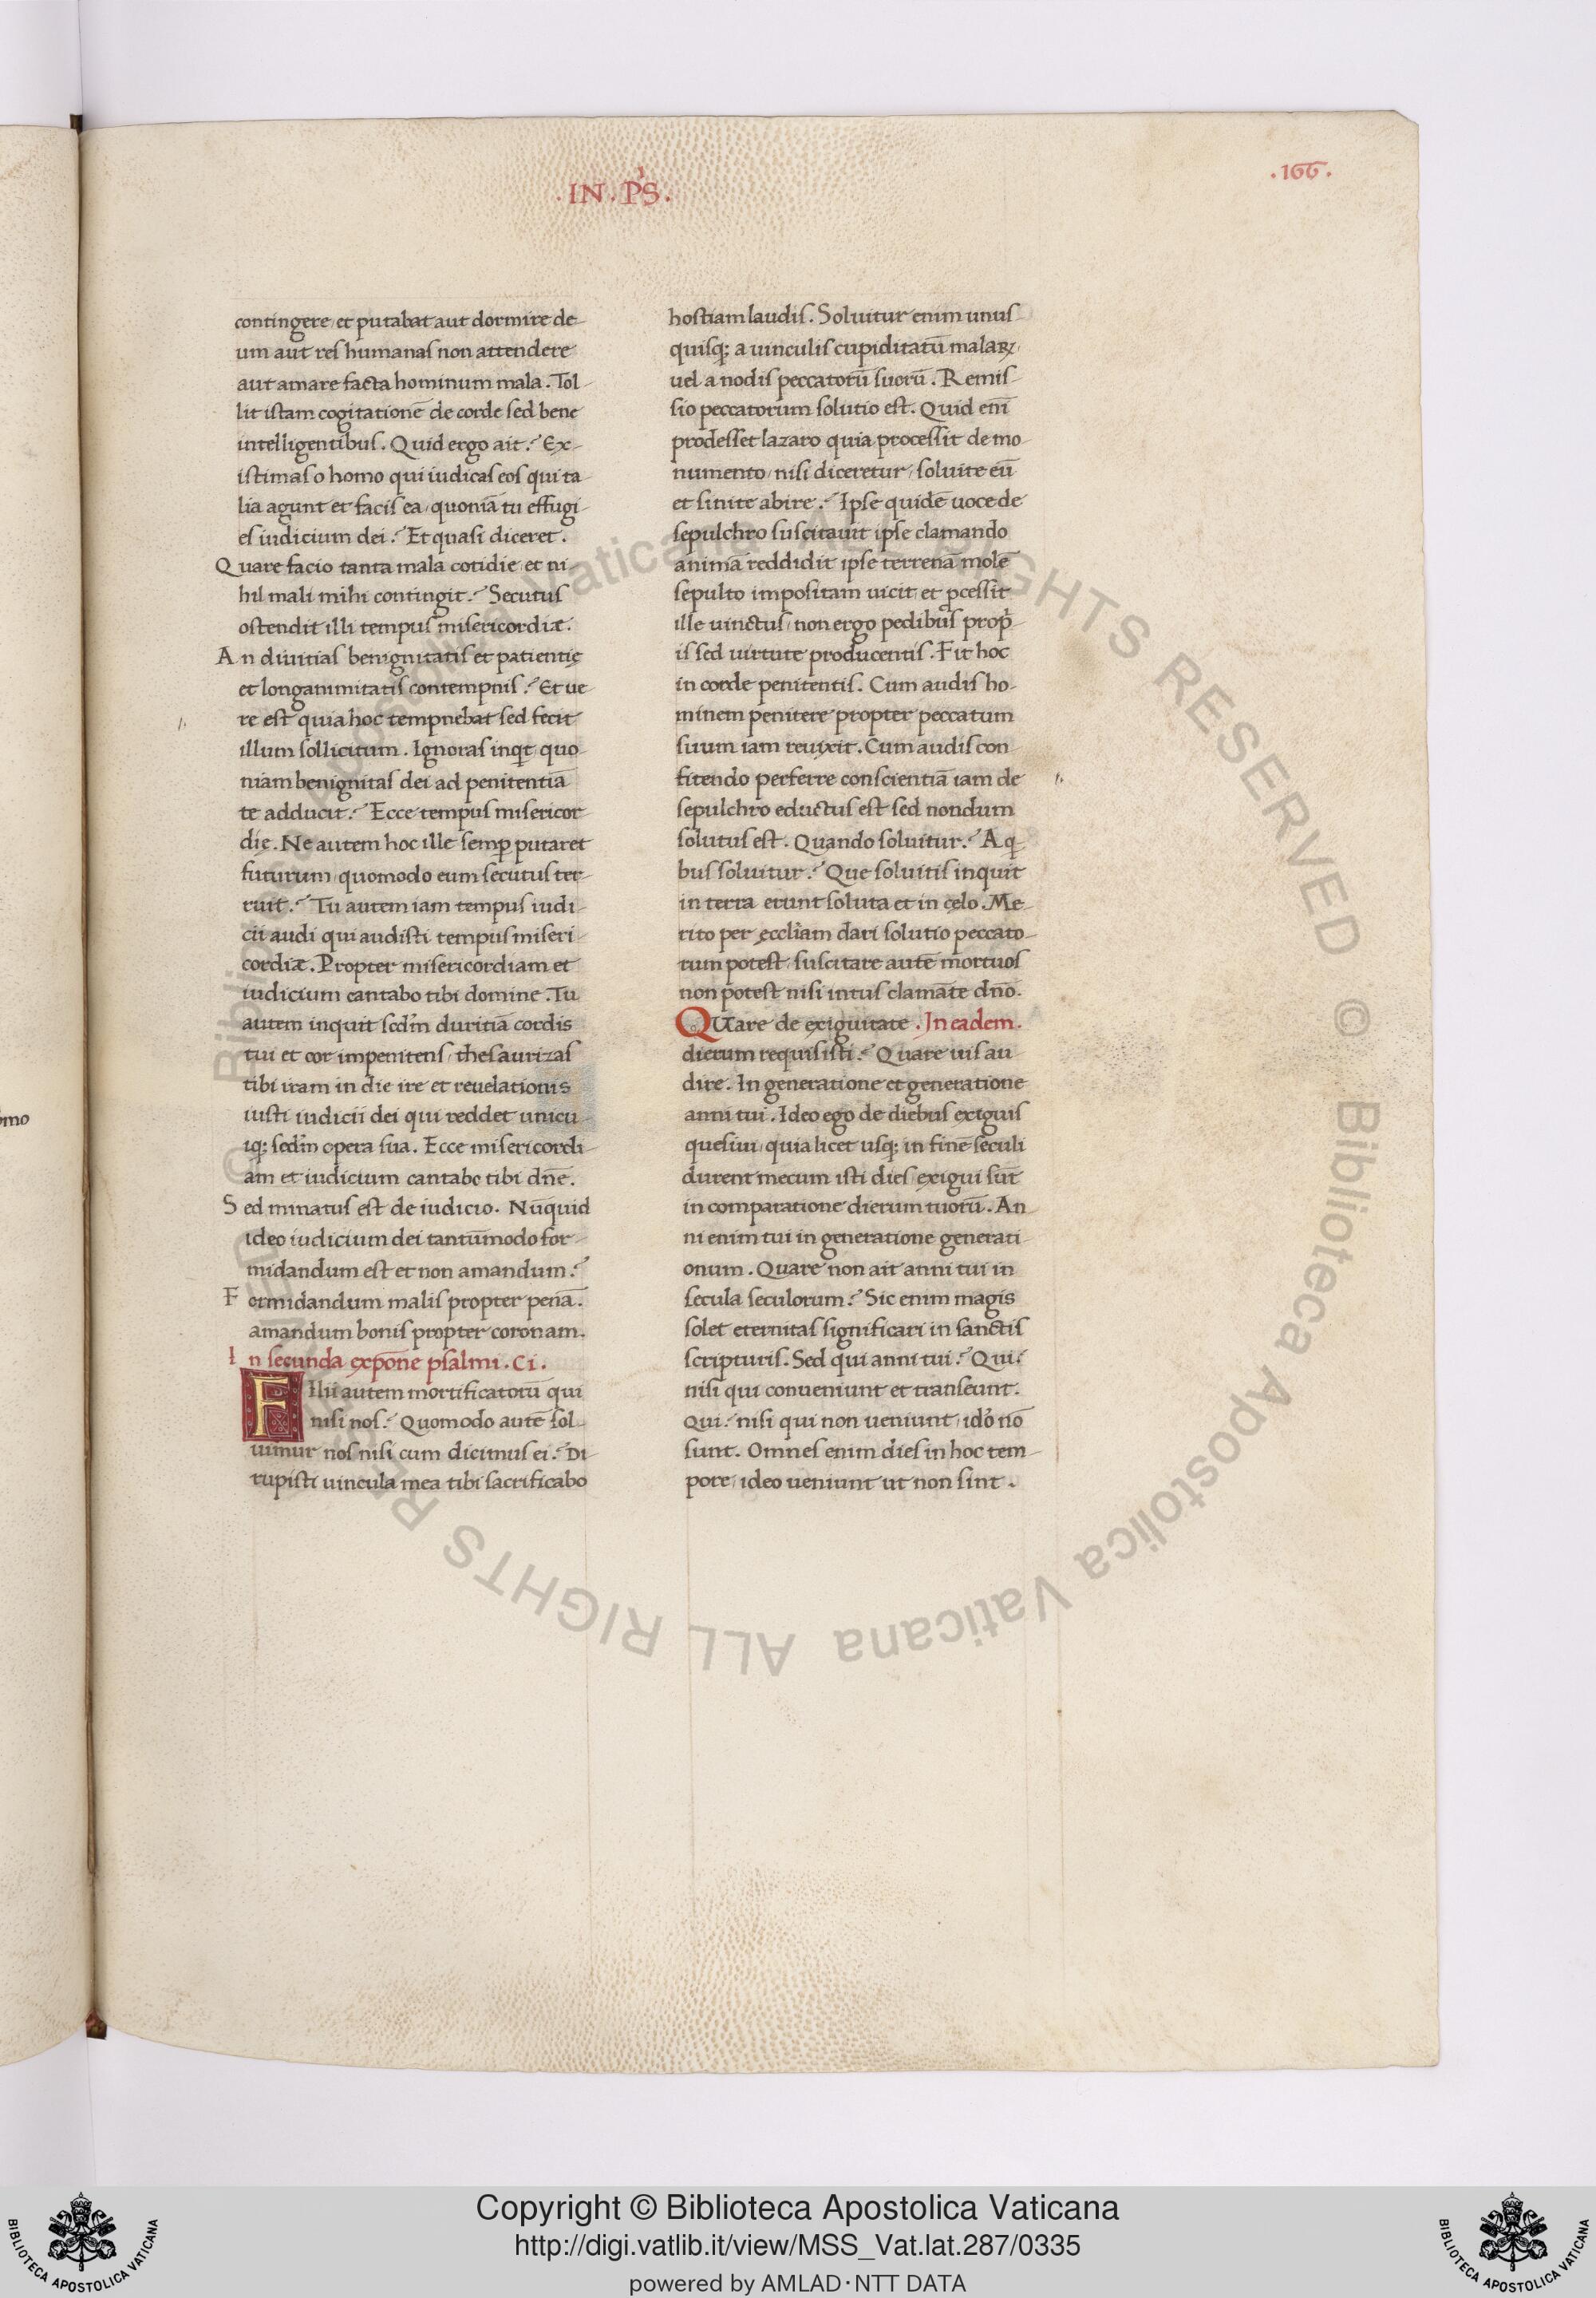 .IN.PS̄.
.166.
contingere, et putabat aut dormire de-
um aut res humanas non attendere
aut amare facta hominum mala. Tol-
lit istam cogitationē de corde sed bene
intelligentibus. Quid ergo ait? Ex-
istimas o homo qui iudicas eos qui ta
lia agunt et facis ea, quoniā tu effugi-
es iudicium dei? Et quasi diceret.
Quare facio tanta mala cotidie, et ni-
hil mali mihi contingit? Secutus
ostendit illi tempus misericordiæ.
An diuitias benignitatis et patientię
et longanimitatis contempnis? Et ue-
re est quia hoc tempnebat sed fecit
illum sollicitum. Ignoras inqt, quo-
niam benignitas dei ad penitentiā
te adducit? Ecce tempus misericor-
dię. Ne autem hoc ille semꝑ putaret
futurum, quomodo eum secutus ter-
ruit? Tu autem iam tempus iudi-
cii audi qui audisti tempus miseri-
cordiæ. Propter misericordiam et
iudicium cantabo tibi domine. Tu
autem inquit scdm̄ duritiā cordis
tui et cor impenitens, thesaurizas
tibi iram in die ire et reuelationis
iusti iudicii dei qui reddet unicu-
iq; scdm̄ opera sua. Ecce misericordi-
am et iudicium cantabo tibi dn̄e.
Sed minatus est de iudicio. Nūquid
ideo iudicium dei tantūmodo for-
midandum est et non amandum?
Formidandum malis propter penā.
amandum bonis propter coronam.
In secunda expōne psalmi. Ci.
FIlii autem mortificatorū qui
nisi nos? Quomodo autē sol-
uimur nos nisi cum dicimus ei? Di-
rupisti uincula mea tibi sacrificabo
hostiam laudis. Soluitur enim unus-
quisq; a uinculis cupiditatū malaꝝ,
uel a nodis peccatorū suorū. Remis-
sio peccatorum solutio est. Quid eni̅
prodesset lazaro quia processit de mo-
numento, nisi diceretur, soluite eū
et sinite abire? Ipse quidē uoce de
sepulchro suscitauit ipse clamando
animā reddidit ipse terrenā molē
sepulto impositam uicit, et ꝓcessit
ille uinctus, non ergo pedibus prop̄
is sed uirtute producentis. Fit hoc
in corde penitentis. Cum audis ho-
minem penitere propter peccatum
suum iam reuixit. Cum audis con-
fitendo perferre conscientiā iam de
sepulchro eductus est sed nondum
solutus est. Quando soluitur? A q
bus soluitur? Que soluitis inquit
in terra erunt soluta et in cęlo. Me-
rito per ęccliam dari solutio peccato-
rum potest, suscitare autē mortuos
non potest nisi intus clamāte dn̄o.
QUare de exiguitate. In eadem.
dierum requisisti? Quare uis au-
dire. In generatione et generatione
anni tui. Ideo ego de diebus exiguis
quesiui, quia licet usq; in finē seculi
durent mecum isti dies, exigui sūt
in comparatione dierum tuorū. An-
ni enim tui in generatione generati-
onum. Quare non ait anni tui in
secula seculorum? Sic enim magis
solet eternitas significari in sanctis
scripturis. Sed qui anni tui? Qui?
nisi qui conueniunt et transeunt.
Qui? nisi qui non ueniunt, idō nō
sunt. Omnes enim dies in hoc tem-
pore, ideo ueniunt ut non sint.
omo
© Biblioteca Apostolica Vaticana ALL RIGHTS RESERVED © Biblioteca Apostolica Vaticana ALL RIGHTS RESERVED
Copyright © Biblioteca Apostolica Vaticana
http://digi.vatlib.it/view/MSS_Vat.lat.287/0335
powered by AMLAD·NTT DATA
BIBLIOTECA APOSTOLICA VATICANA
BIBLIOTECA APOSTOLICA VATICANA